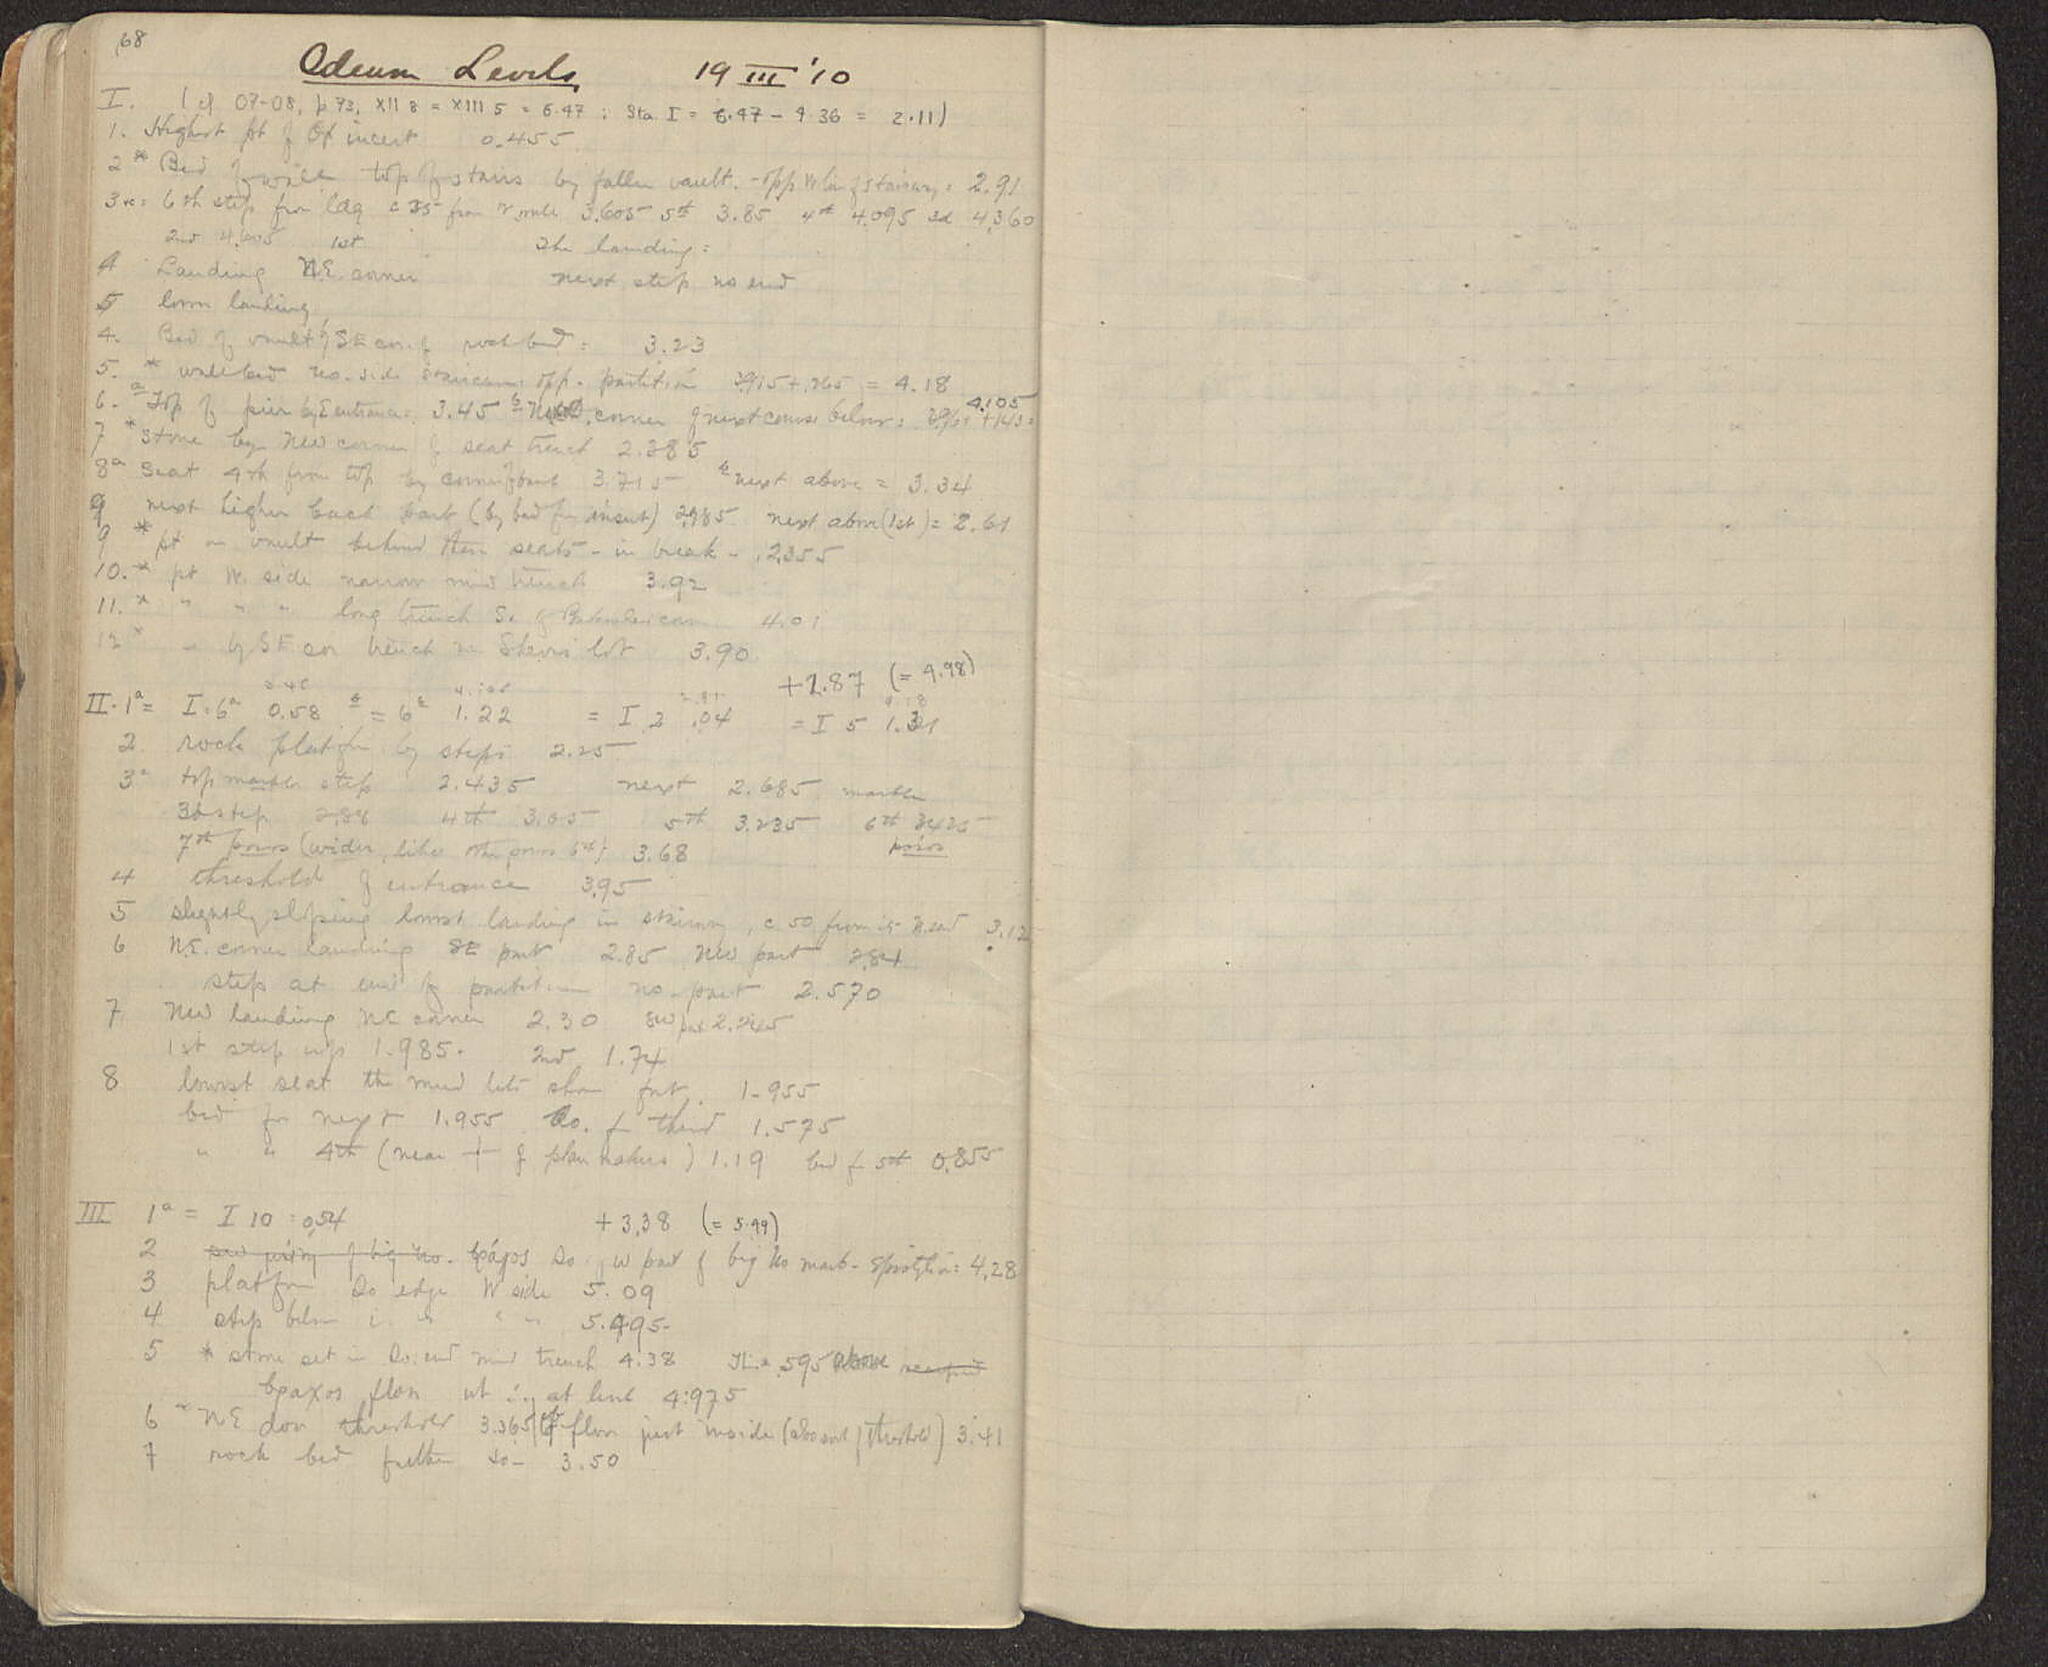 68
Odeum Levels 19 III '10
I. (cf 07-08, p 73, XII 8 = XIII 5 = 6.47 ; Sta I = 6.47 - 4.36 = 2.11)
1. Highest pt of Op incert 0.455
2 * Bed of wall top of stairs by fallen vault. - opp W lin of stairway = 2.91
6th step from ldg c 35 from 3.605 5th 3.85 4th 4.095 3d 4.360
2nd 4.605 1st The landing =
4 Landing N.E. corner next step no end
5 lower landing
4. Bed of vault by SE cor. of rock bed = 3.23
5. * wall bed no. side staircase opp. partition + .265 = 4.18
6. a Top of pier by E entrance. 3.45 b corner of next course below = 4.105
7 * Stone by NW corner of seat trench 2.385
8a Seat 4th from top by corner 3.715 b next above = 3.34
9 next higher back part (by bed for insert) 2.985 next above (1st) = 2.61
9 * pt on vault behind these seats - in break - .2355
10. * pt W. side narrow mid trench 3.92
11. * " " " long trench So. of 4.01
12 * " by SE cor trench in lot 3.90
+2.87 (= 4.98)
II. 1a = I. 6a 0.58 b = 6b 1.22 = I 2 .04 = I 5 1.31
2 rock platfm by steps 2.25
3a top marble step 2.435 next 2.685 marble
3d step 4th 3.05 5th 3.235 6th 3425
7th poros (wider, like other poros 6th) 3.68 poros
4 threshold of entrance 3.95
5 slightly sloping lowest landing in stairway, c. 50 from its N. end 3.12
6 N.E. corner landing SE part 2.85 NW part 2.84
step at end of partition no. part 2.570
7 NW landing NE corner 2.30 SW part 2.245
1st step up 1.985. 2nd 1.74
8 lowest seat the mud lets show frt. 1.955
bed for next 1.955 Do. for third 1.575
" " 4th (near + of plan makers) 1.19 bed for 5th 0.855
III 1a = I 10 = 0.54 +3.38 (= 5.49)
2 βράχος So of W part of big No mark. 4.28
3 platform So edge W side 5.09
4 step below " " " " 5.495
5 * stone set in So. end mid trench 4.38 This .595 above
βραχος floor at 4.975
6 a NE door threshold 3.365 b floor just inside (also of threshold) 3.41
7 rock bed further so - 3.50